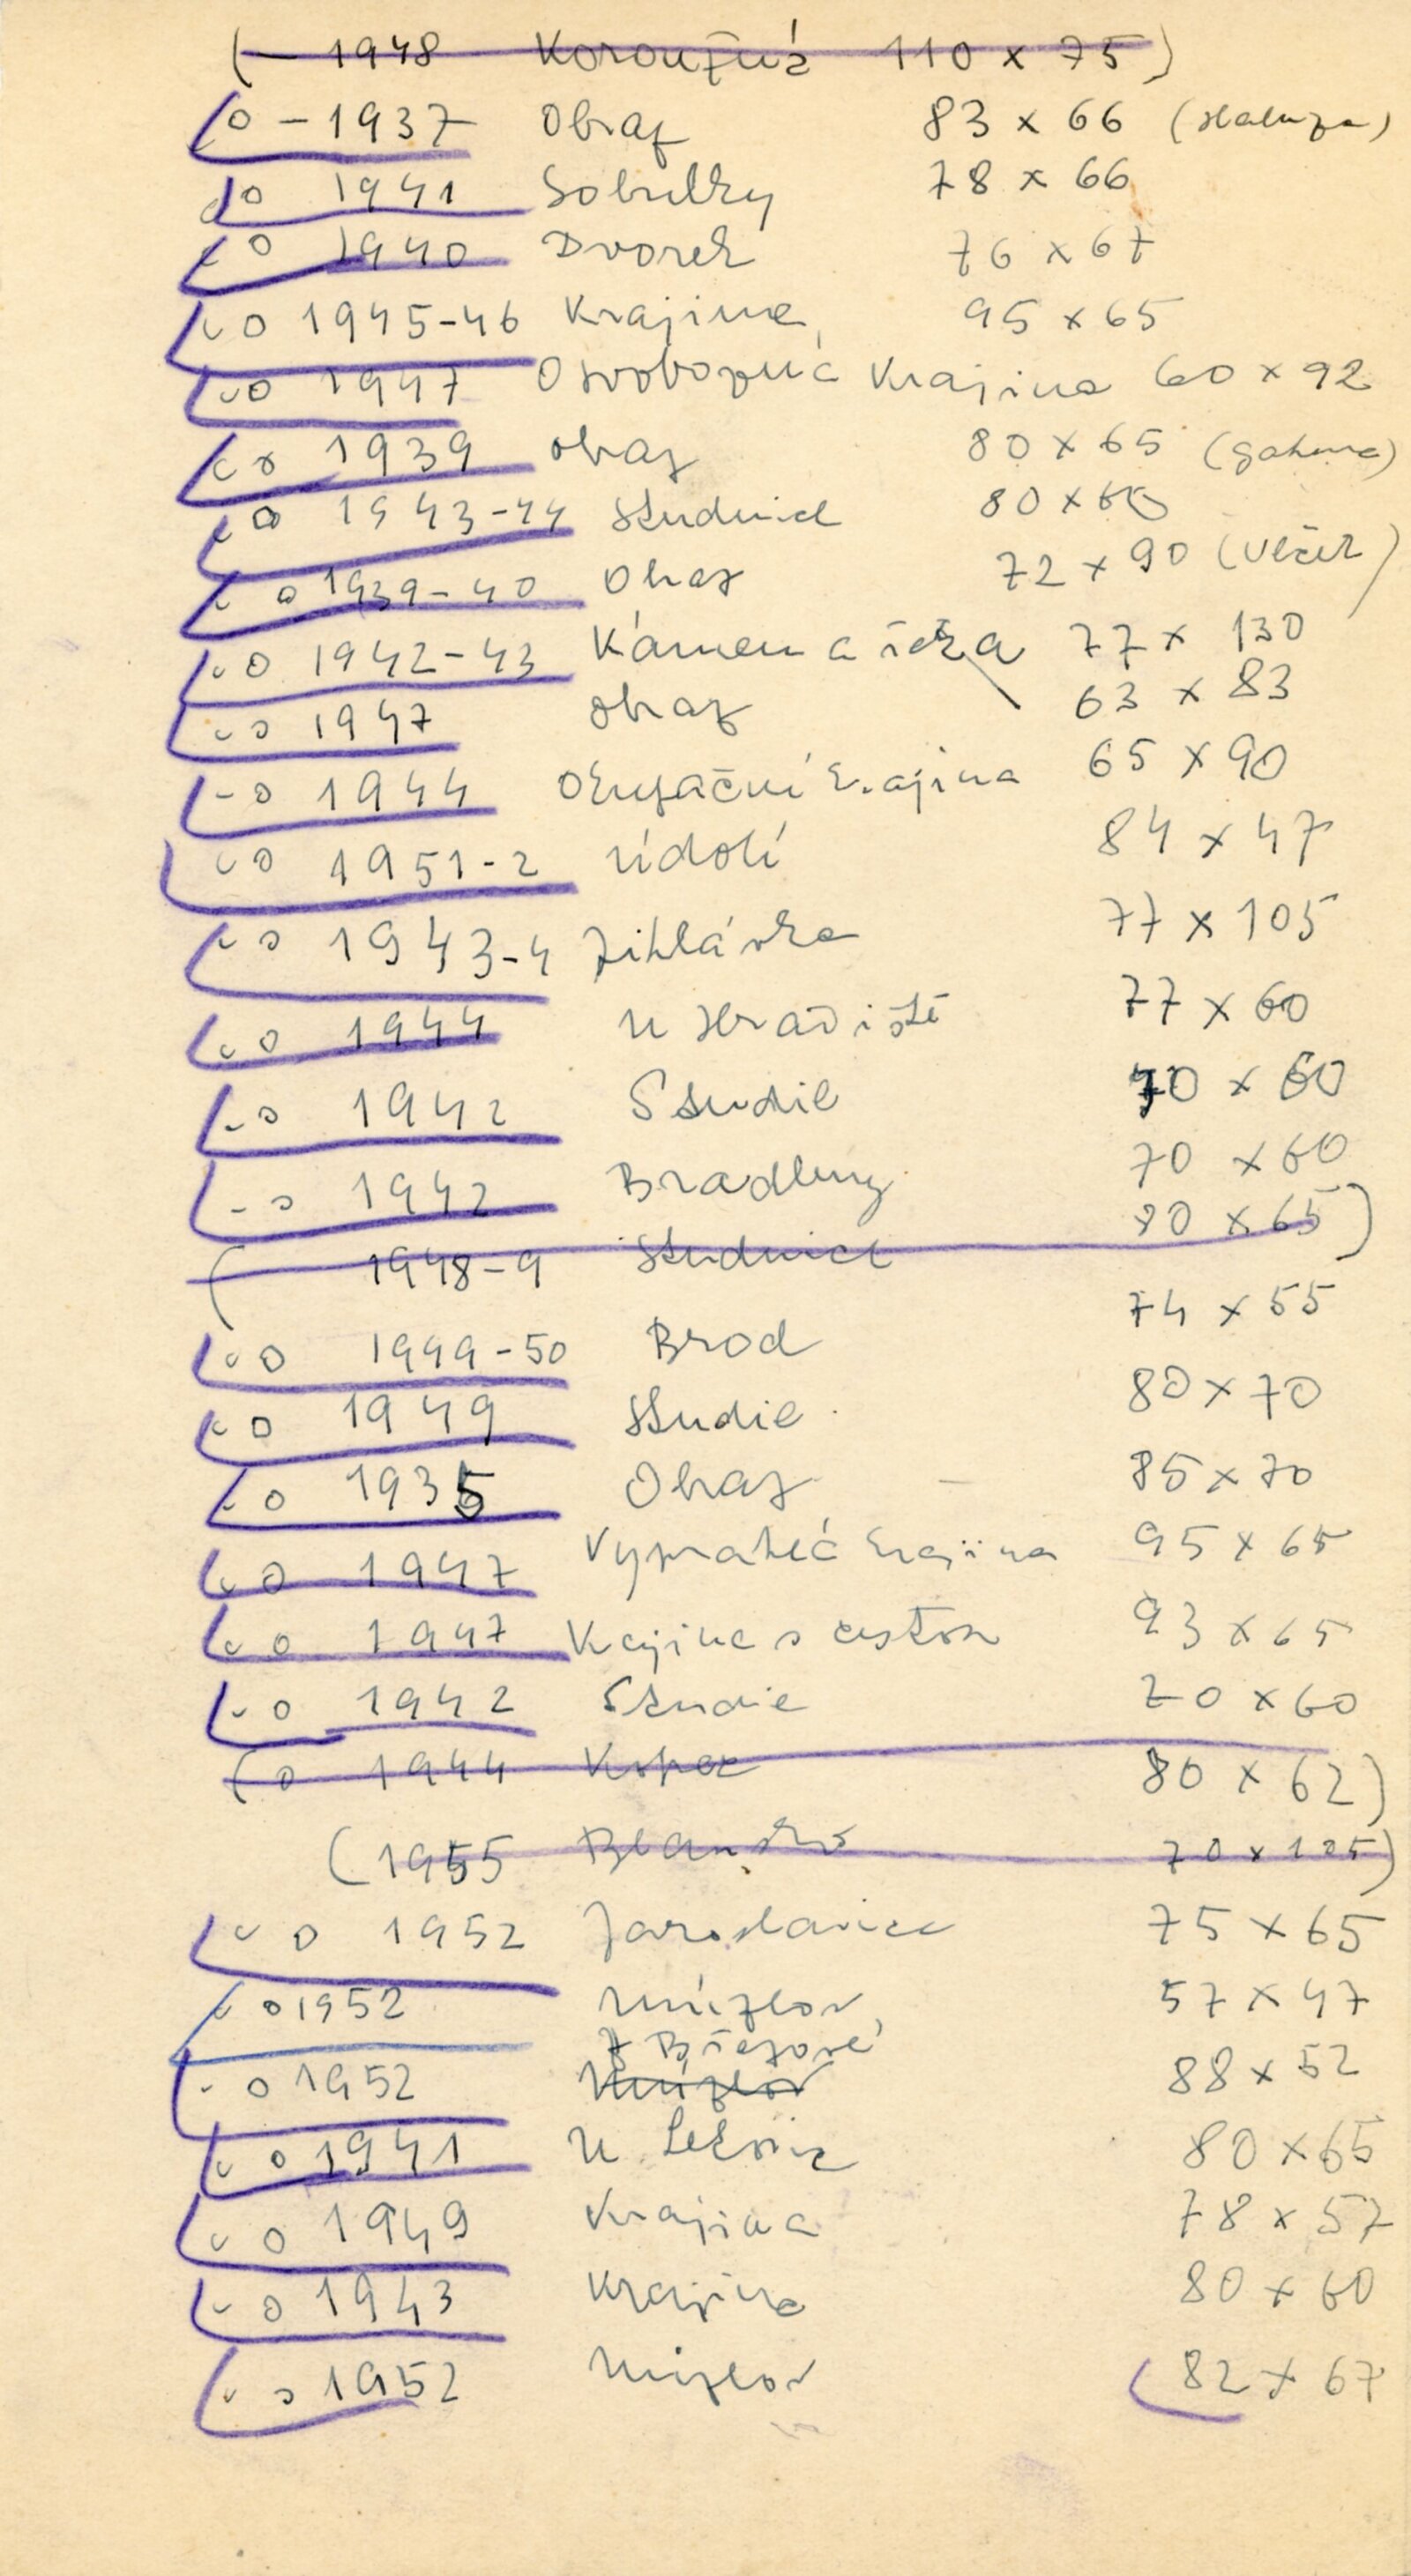 (– 1948 Koroužná 110 x 75)
o – 1937 Obraz 83 x 66 (Haluza)
o 1941 Sobulky 78 x 66
o 1940 Dvorek 76 x 67
o 1945-46 Krajina 95 x 65
o 1947 Osvobozená krajina 60 x 92
x 1939 obraz 80 x 65
o 1943-44 Studnice 80 x 60
o 1939-40 Obraz 72 x 90 (Vlček)
o 1942-43 Kámen a řeka 77 x 130
o 1947 obraz 63 x 83
o 1944 Okupační krajina 65 x 90
o 1951-2 údolí 84 x 47
o 1943-4 Jihlávka 77 x 105
o 1944 U Hradiště 77 x 60
o 1942 Studie 70 x 60
o 1942 Bradleny 70 x 60
( 1948-9 Studnice 80 x 65)
o 1949-50 Brod 74 x 55
o 1949 Studie 80 x 70
o 1935 Obraz 85 x 70
o 1947 Vyprahlá krajina 95 x 65
o 1947 Krajina s cestou 93 x 65
o 1942 Studie 70 x 60
(o 1944 Kopec 80 x 62)
(1955 Blansko 70 x 105)
o 1952 Jaroslavice 75 x 65
o 1952 Mníšlov 57 x 47
Z Březové
o 1952 88 x 52
o 1941 U Lekvic 80 x 65
o 1949 Krajina 78 x 57
o 1943 Krajina 80 x 60
o 1952 82 x 67